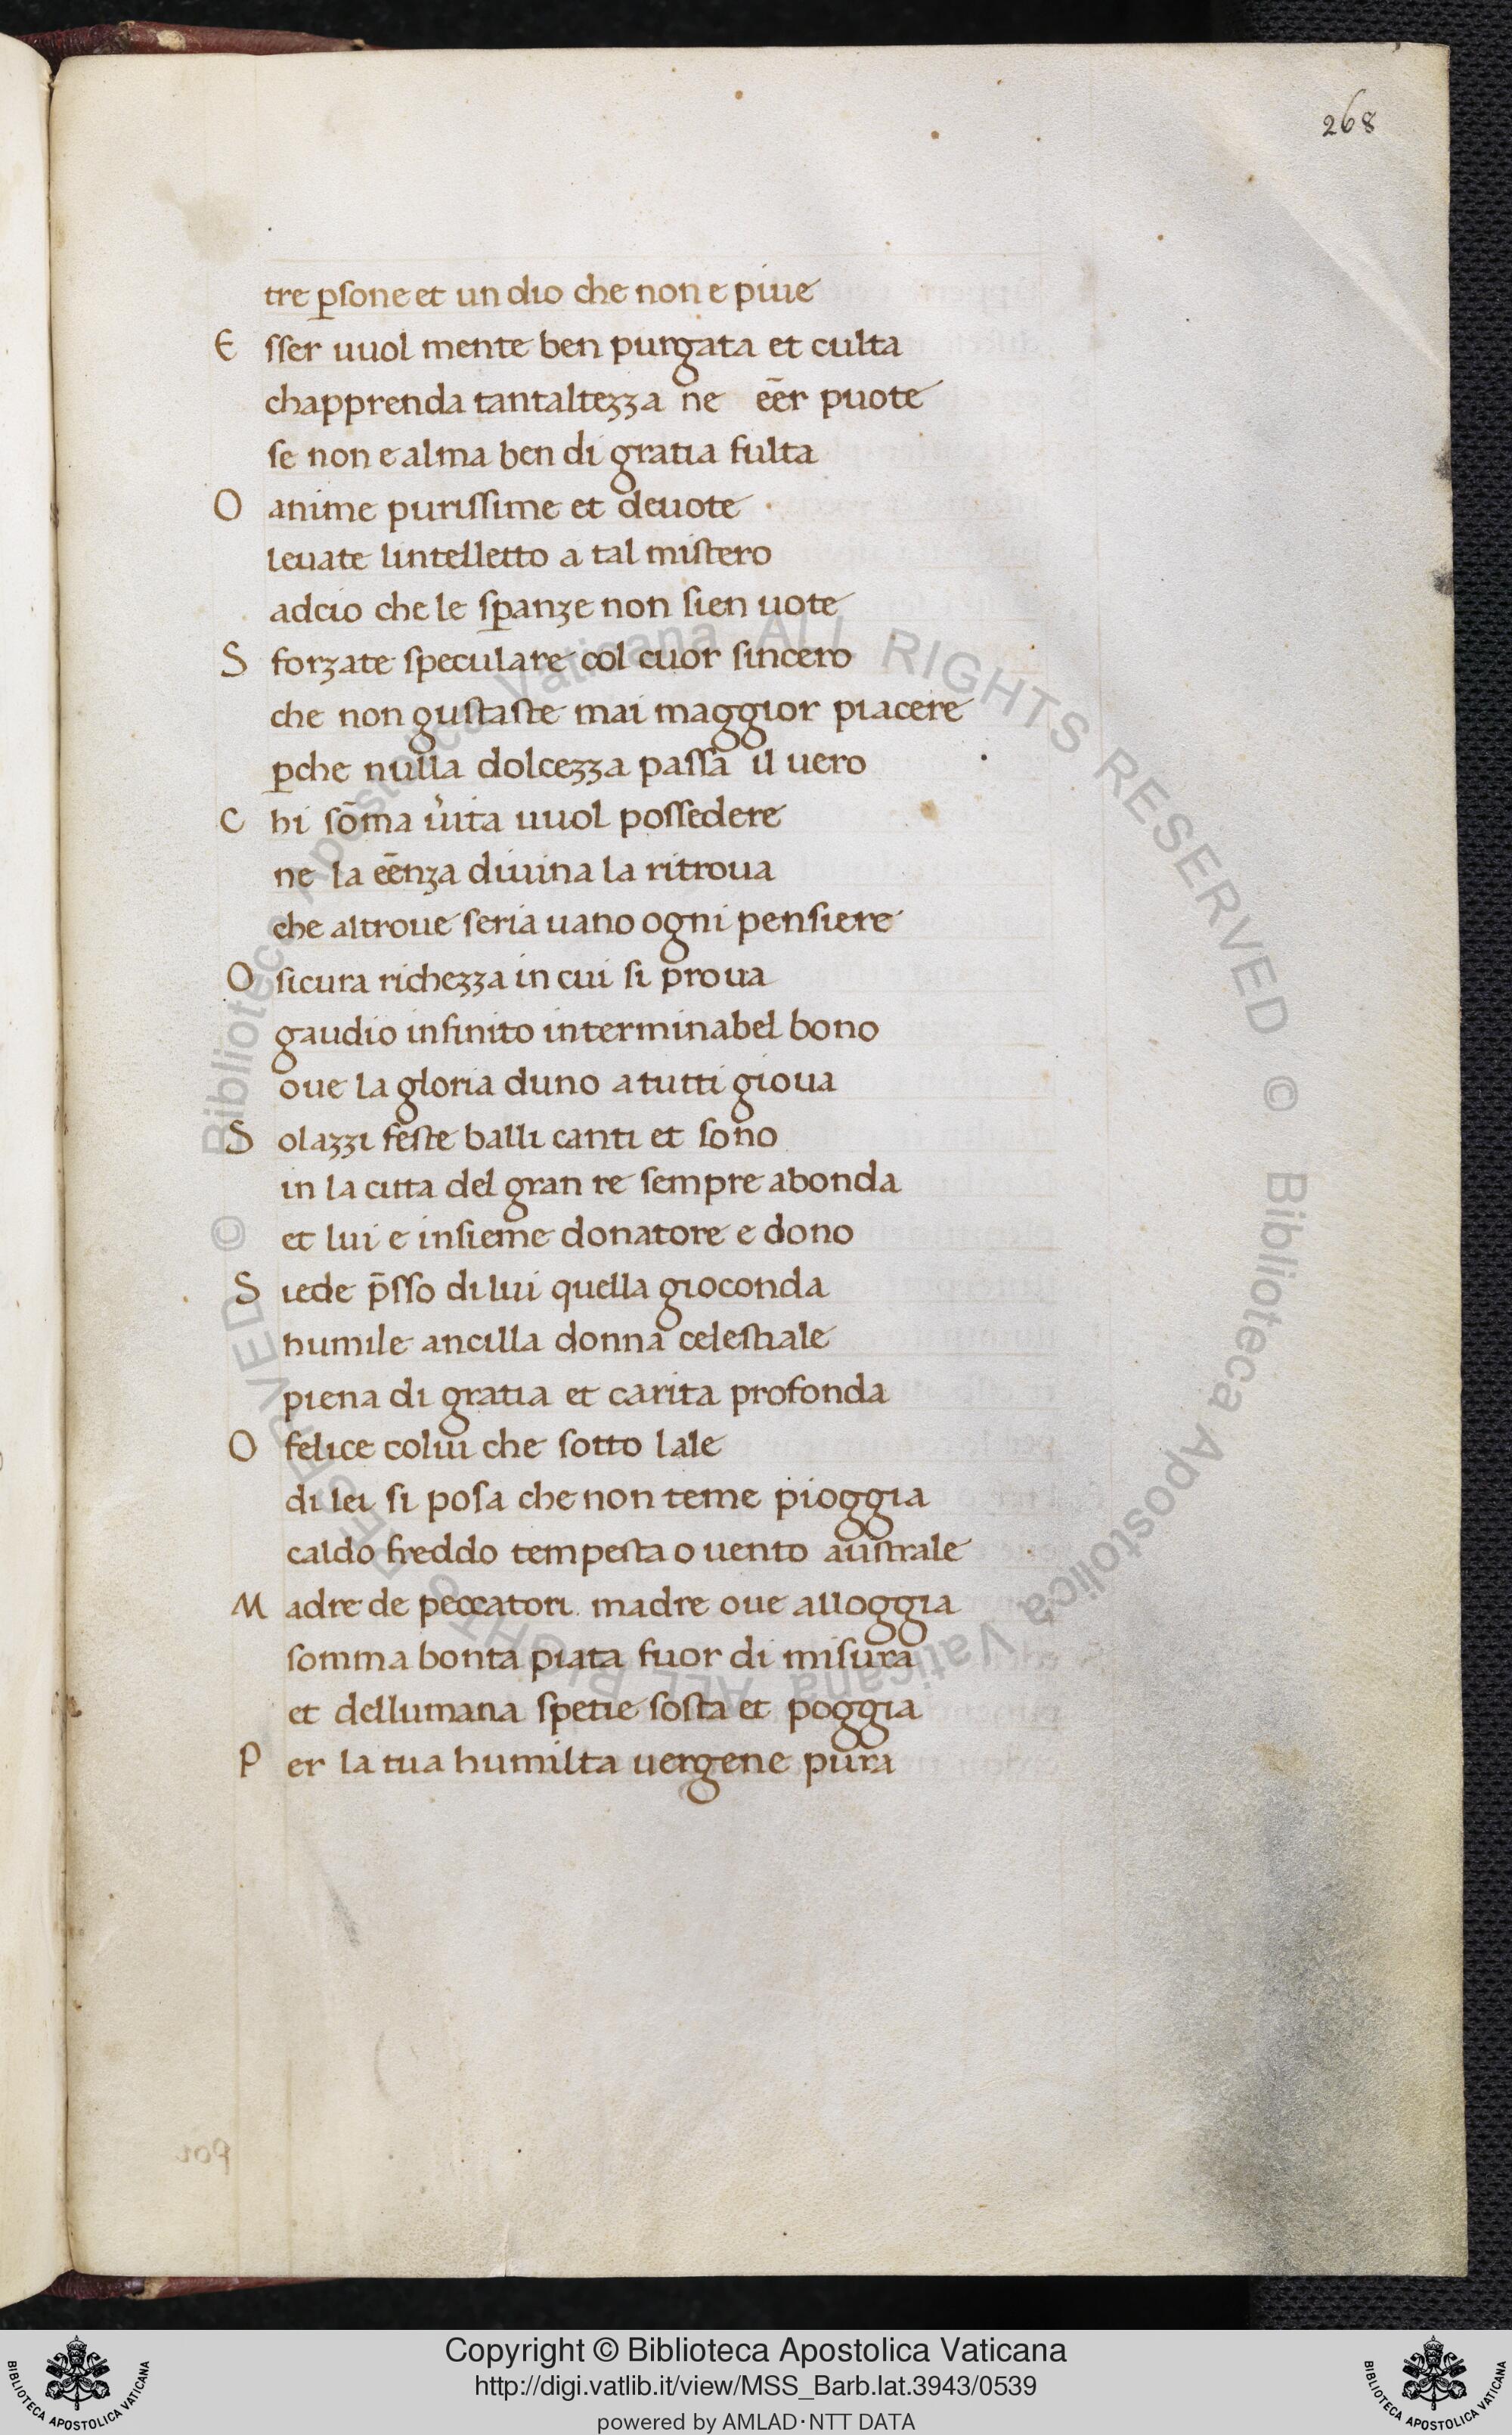 268
tre ꝑsone et un dio che non e piue
E sser uuol mente ben purgata et culta
chapprenda tantaltezza ne eēr puote
se non e alma ben di gratia fulta
O anime purissime et deuote
leuate lintelletto a tal mistero
adcio che le sꝑanze non sien uote
S forzate speculare col cuor sincero
che non gustaste mai maggior piacere
ꝑche nulla dolcezza passa il uero
C hi sōma uʼita uuol possedere
ne la eēnza diuina la ritroua
che altroue seria uano ogni pensiere
O sicura richezza in cui si proua
gaudio infinito interminabel bono
oue la gloria duno a tutti gioua
S olazzi feste balli canti et sono
in la citta del gran re sempre abonda
et lui e insieme donatore e dono
S iede p̄sso di lui quella gioconda
humile ancilla donna celestiale
piena di gratia et carita profonda
O felice colui che sotto lale
di lei si posa che non teme pioggia
caldo freddo tempesta o uento australe
M adre de peccatori madre oue alloggia
somma bonta piata fuor di misura
et dellumana spetie sosta et poggia
P er la tua humilta uergene pura
© Biblioteca Apostolica Vaticana ALL RIGHTS RESERVED © Biblioteca Apostolica Vaticana ALL RIGHTS RESERVED
Copyright © Biblioteca Apostolica Vaticana
http://digi.vatlib.it/view/MSS_Barb.lat.3943/0539
powered by AMLAD·NTT DATA
BIBLIOTECA APOSTOLICA VATICANA
BIBLIOTECA APOSTOLICA VATICANA